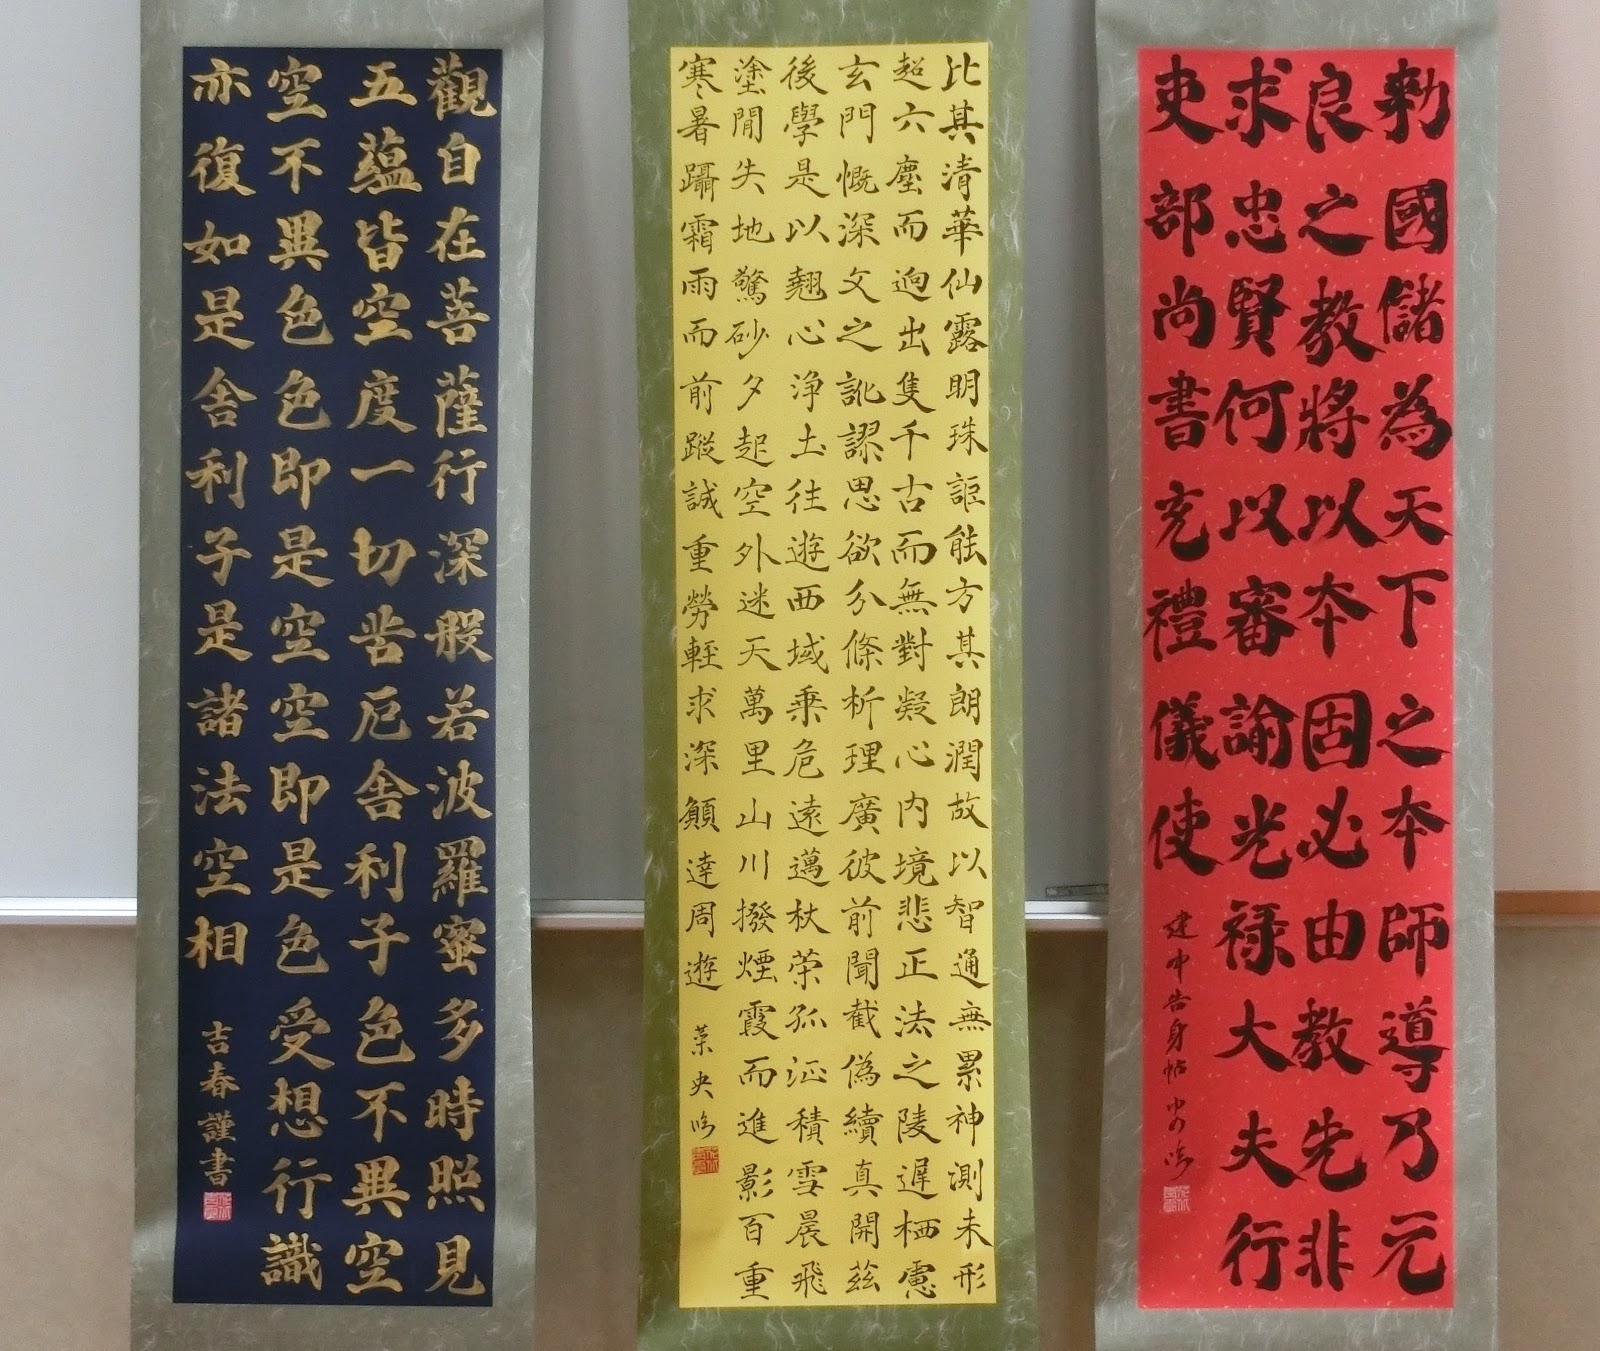 勅國儲為天下之本師導乃元
良之教將以本固必由教先非
求忠賢何以審諭光祿大夫行
吏部尚書充禮儀使
建中告身帖 臨
比其清華仙露明珠詎能方其朗潤故以智通無累神測未形
超六塵而迥出隻千古而無對凝心内境悲正法之陵遲栖慮
玄門慨深文之訛謬思欲分條析理廣彼前聞截偽續真開茲
後學是以翹心浄土往遊西域乗危遠邁杖策孤征積雪晨飛
塗閒失地驚砂夕起空外迷天萬里山川撥煙霞而進影百重
寒暑躡霜雨而前蹤誠重勞輕求深願達周遊
央臨
觀自在菩薩行深般若波羅蜜多時照見
五蘊皆空度一切苦厄舍利子色不異空
空不異色色即是空空即是色受想行識
亦復如是舍利子是諸法空相
吉春謹書